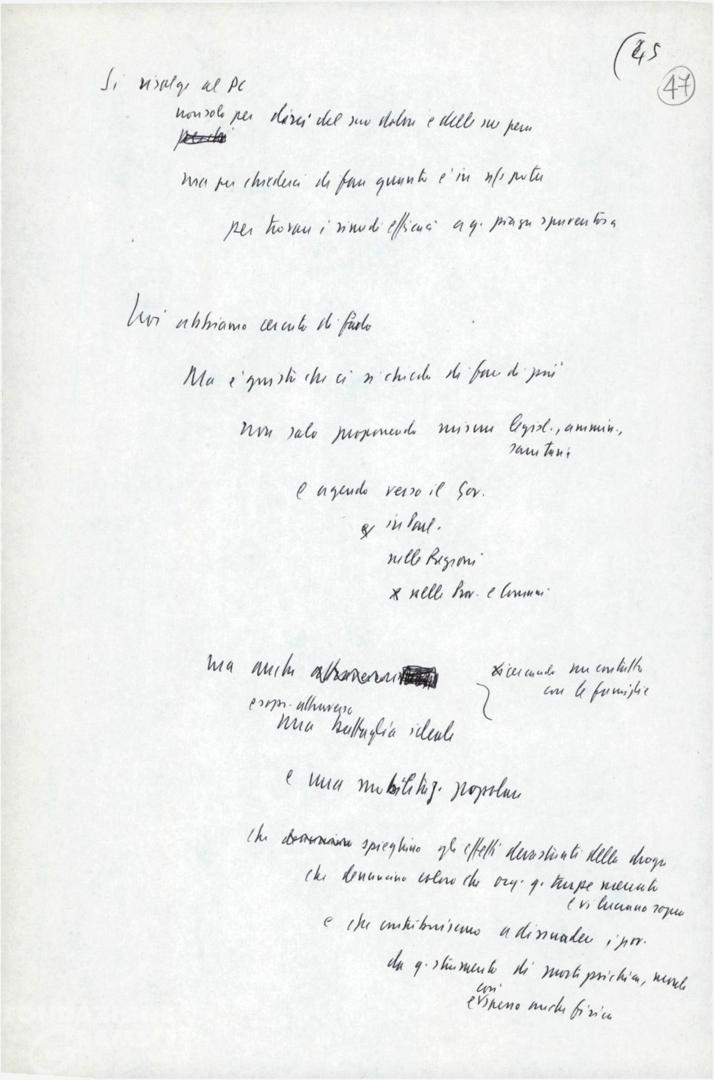 (45
47
Si rivolge al PC
non solo per dirci del suo dolore e delle sue pene
perché
ma per chiederci di fare quanto è in ns/ potere
per trovare i rimedi efficaci a q. piaga spaventosa
Noi abbiamo cercato di farlo
Ma è giusto che ci si chieda di fare di più
non solo proponendo misure legisl., ammin.,
sanitarie
e agendo verso il Gov.
in Parl.
nelle Regioni
nelle Prov. e Comuni
ma anche attraverso
ricercando un contatto
con le famiglie
e sopr. attraverso
una battaglia ideale
e una mobilitaz. popolare
che spieghino gli effetti devastanti della droga
che denuncino coloro che org. q. turpe mercato
e vi lucrano sopra
e che contribuiscano a dissuadere i giov.
da q. strumento di morte psichica, morale
e così spesso anche fisica